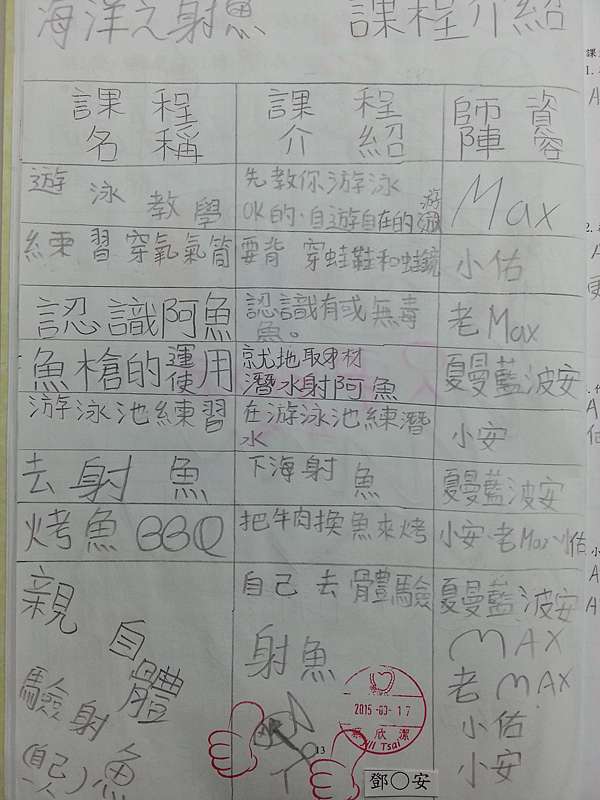 海洋之射魚 課程介紹
課程名稱 課程介紹 師資陣容
遊泳教學 先教你游泳OK的.自遊自在的游 Max
練習穿氧氣筒 要背 穿蛙鞋和蛙鏡 小佑
認識阿魚 認識有或無毒魚。 老Max
魚槍的運使用 就地取材潛水射阿魚 夏曼藍波安
游泳池練習 在游泳池練潛水 小安
去射魚 下海射魚 夏曼藍波安
烤魚BBQ 把牛肉換魚來烤 小安、老Max、小佑
親自體驗射魚(自己) 自己去體驗射魚 夏曼藍波安
MAX
老MAX
小佑
小安
2015-03-17
蔡欣潔
Tsai
13
鄧○安